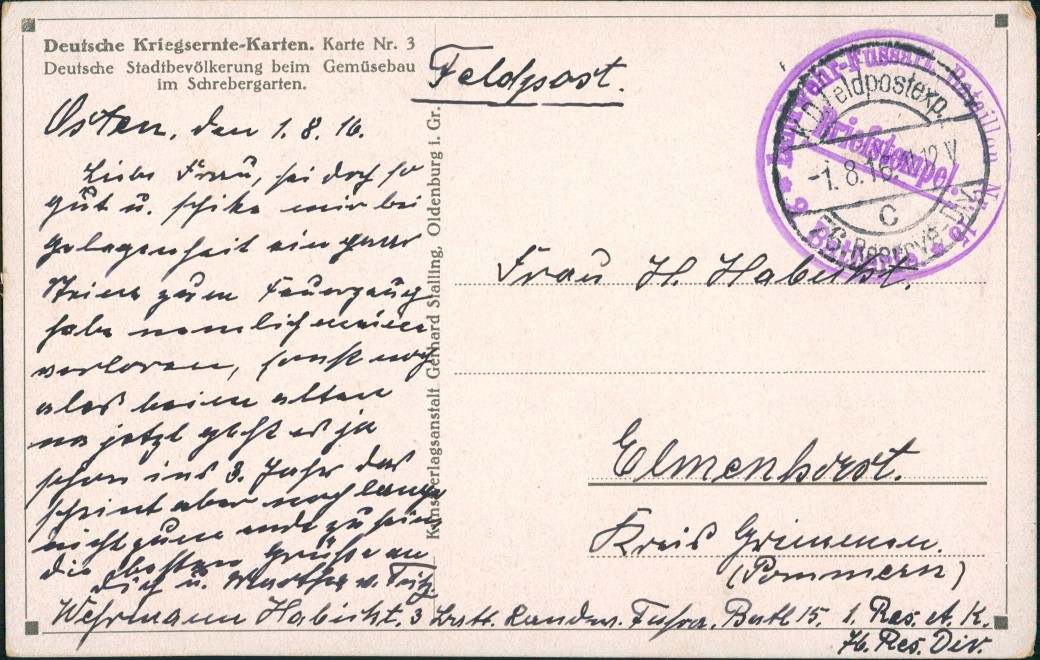 Deutsche Kriegsernte-Karten. Karte Nr. 3
Deutsche Stadtbevölkerung beim Gemüsebau
im Schrebergarten.
Feldpost.
Osten, den 1.8.16.
Liebe Frau, sei doch so
gut u. schike mir bei
gelegenheit ein paar
Steine zum Feuerzeug
habe nemlich meine
verloren, sonst noch
ales beim alten
na jetzt geht es ja
schon ins 3. Jahr das
scheint aber noch lange
nicht zum ende zu sein,
die besten Grüße an
dich u. Marthe v. Fritz
Wehrmann Habicht. 3 Batt. Landw. Fußa. Batl 15. 1 Res. A. K.
76. Res. Div.
Kunstverlagsanstalt Gerhard Stalling, Oldenburg i. Gr.
Landwehr-Fussart. Bataillon Nr. 15
Briefstempel.
K.D. Feldpostexp.
-1.8.16. 12 V
c
Reserve-Div.
Frau H. Habicht.
Elmenhorst.
Kreis Grimmen.
(Pommern)